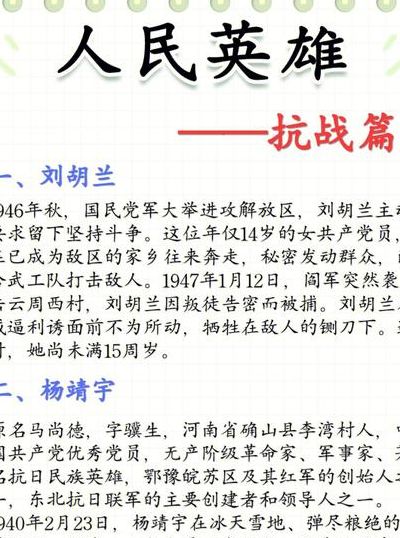 人民英雄
——抗战篇
一、刘胡兰
1946年秋，国民党军大举进攻解放区，刘胡兰主动
要求留下坚持斗争。这位年仅14岁的女共产党员，
在已成为敌区的家乡往来奔走，秘密发动群众，
合武工队打击敌人。1947年1月12日，阎军突然袭
击云周西村，刘胡兰因叛徒告密而被捕。刘胡兰
威逼利诱面前不为所动，牺牲在敌人的铡刀下。
时，她尚未满15周岁。
二、杨靖宇
原名马尚德，字骥生，河南省确山县李湾村人，中
国共产党优秀党员，无产阶级革命家、军事家、
名抗日民族英雄，鄂豫皖苏区及其红军的创始人之
一，东北抗日联军的主要创建者和领导人之一。
1940年2月23日，杨靖宇在冰天雪地、弹尽粮绝的